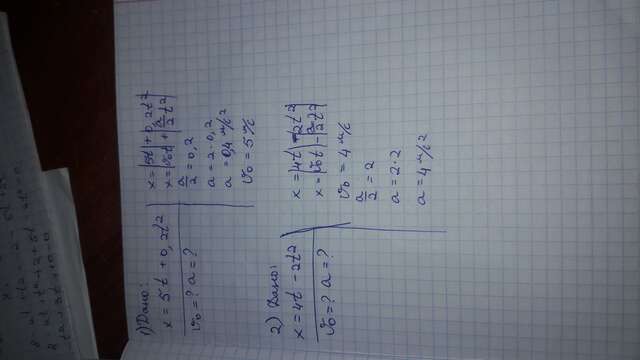 1) Дано:
x = 5t + 0,2t²
v₀ = ? a = ?
x = |5t| + 0,2t²|
x = |v₀t| + a/2 t²|
a/2 = 0,2
a = 2·0,2
a = 0,4 м/с²
v₀ = 5 м/с
2) Дано:
x = 4t - 2t²
v₀ = ? a = ?
x = |4t| - |2t²|
x = |v₀t| - |a/2 t²|
v₀ = 4 м/с
a/2 = 2
a = 2·2
a = 4 м/с²